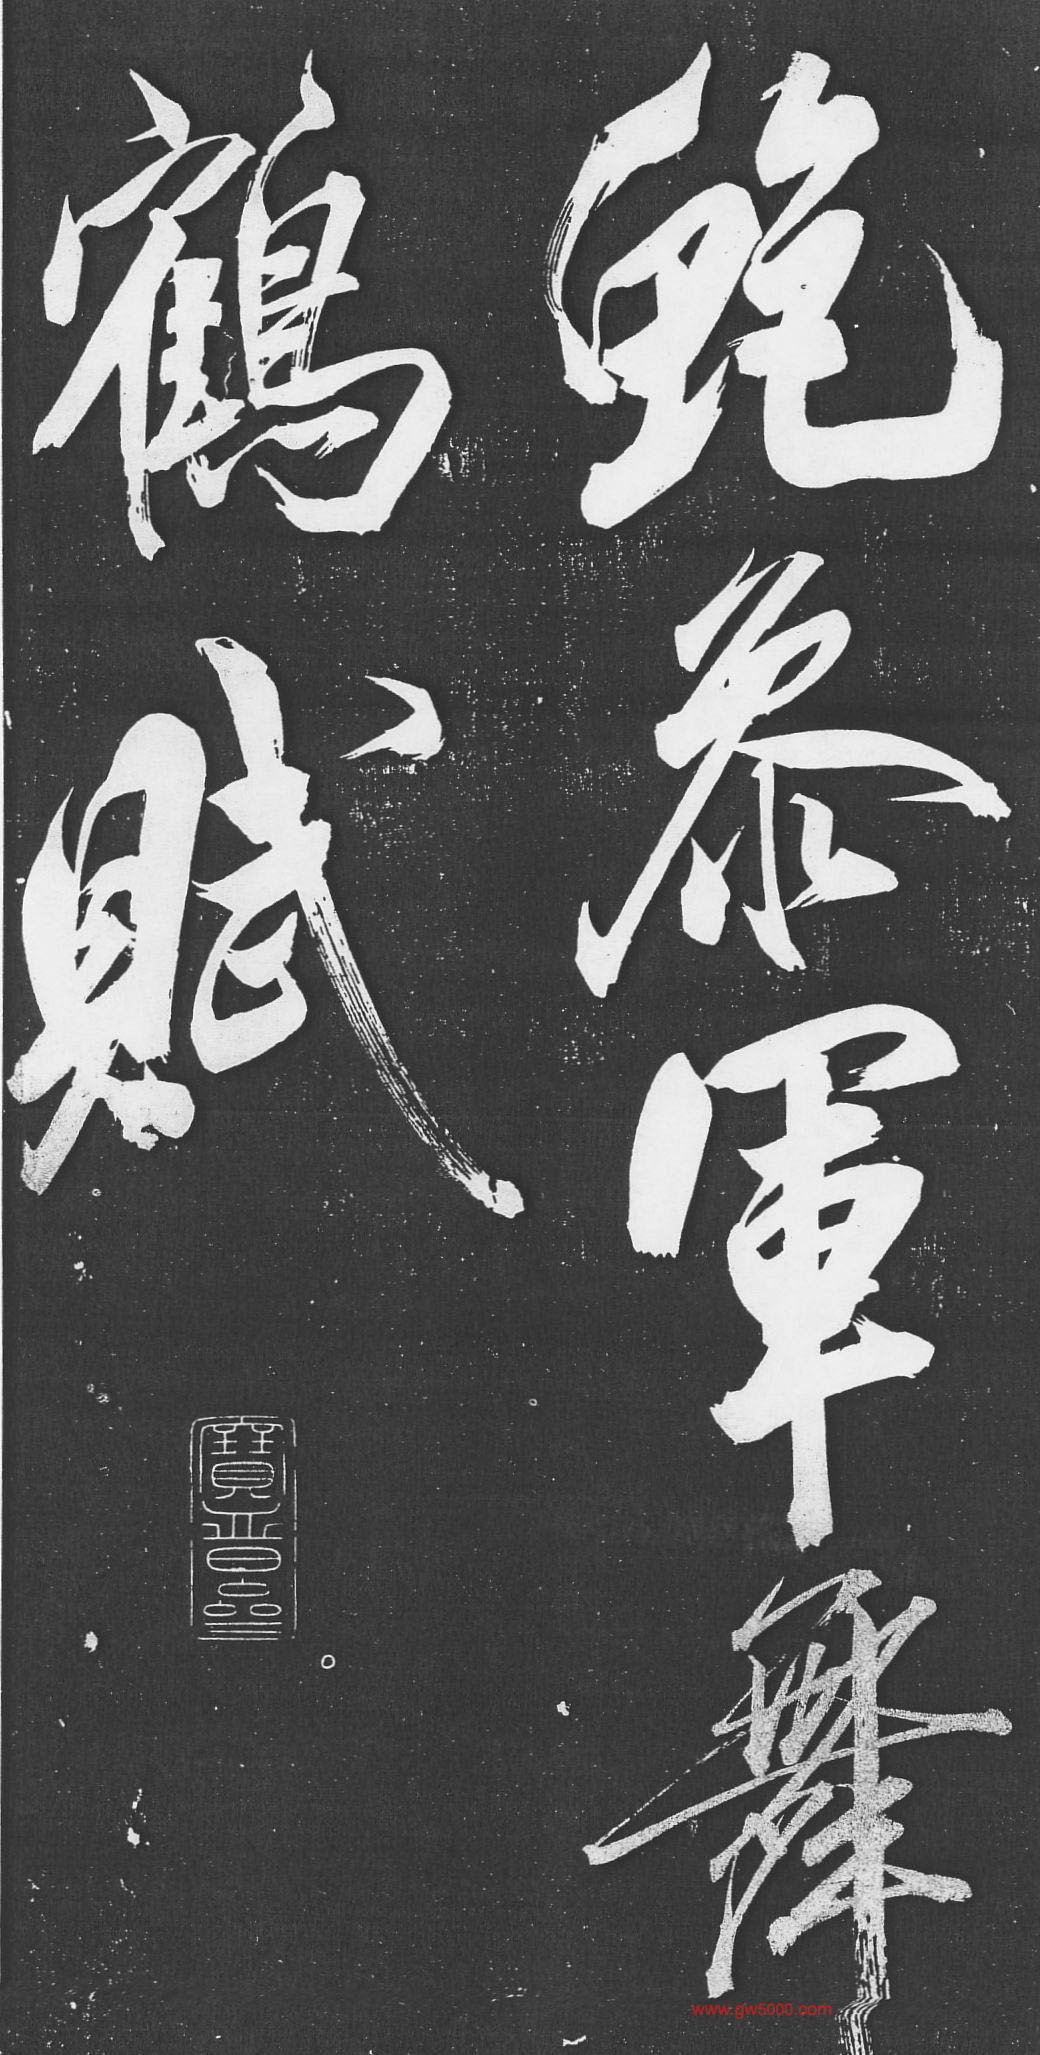 鮑參軍舞
鶴賦
寶晉齋
www.gw5000.com